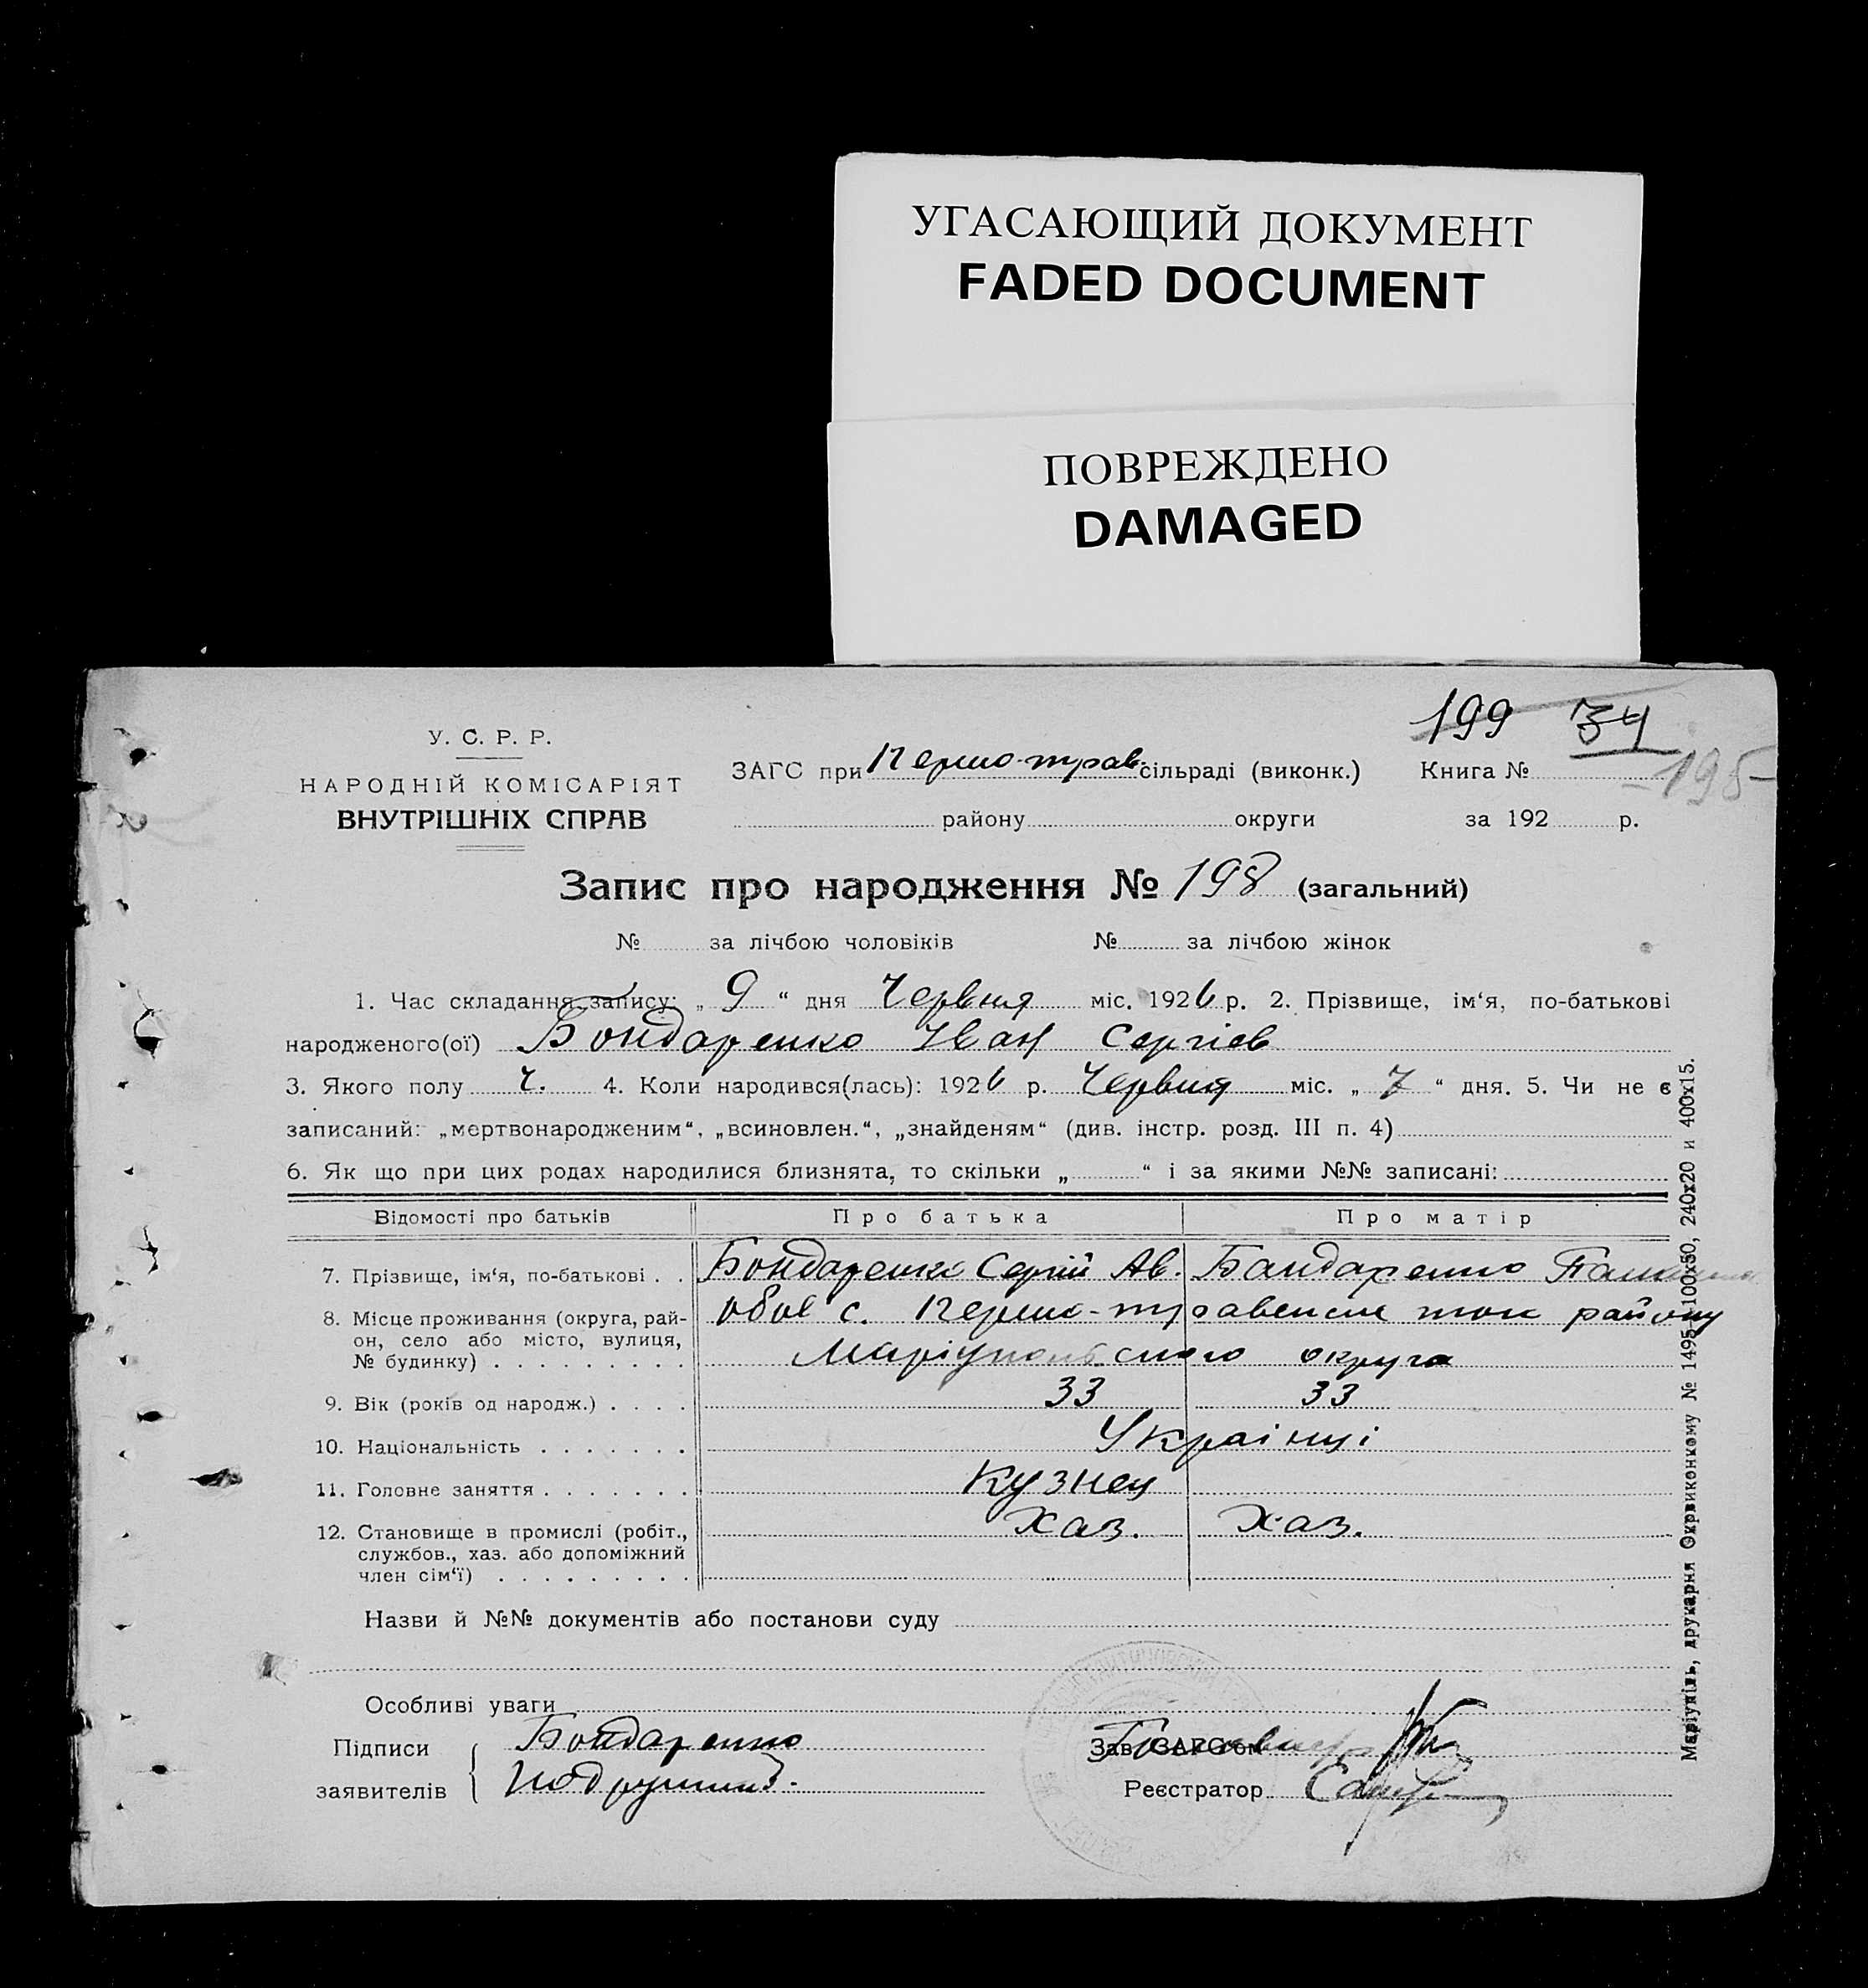 УГАСАЮЩИЙ ДОКУМЕНТ
FADED DOCUMENT
ПОВРЕЖДЕНО
DAMAGED
199 34
195
У. С. Р. Р.
НАРОДНІЙ КОМІСАРІЯТ
ВНУТРІШНІХ СПРАВ
ЗАГС при Першо-трав. сільраді (виконк.) Книга №
району округи за 192 р.
Запис про народження № 198 (загальний)
№ за лічбою чоловіків № за лічбою жінок
1. Час складання запису: „ 9 “ дня Червня міс. 1926 р. 2. Прізвище, ім‘я, по-батькові
народженого(ої) Бондаренко Іван Сергієв
3. Якого полу ч. 4. Коли народився(лась): 1926 р. Червня міс. „ 7 “ дня. 5. Чи не є
записаний: „мертвонародженим“, „всиновлен.“, „знайденям“ (див. інстр. розд. III п. 4)
6. Як що при цих родах народилися близнята, то скільки „ “ і за якими №№ записані:
Відомості про батьків Про батька Про матір
7. Прізвище, ім‘я, по-батькові . . Бондаренко Сергій Ав. Бандаренко
8. Місце проживання (округа, рай-
он, село або місто, вулиця,
№ будинку) . . . . . . . . .
обоє с. Першо-травенськ того району
Маріупольского округа
9. Вік (років од народж.) . . . . 33 33
10. Національність . . . . . . . Українці
11. Головне заняття . . . . . . . Кузнец
12. Становище в промислі (робіт.,
службов., хаз. або допоміжний
член сім‘ї) . . . . . . . . .
Хаз. Хаз.
Назви й №№ документів або постанови суду
Особливі уваги
Підписи
заявителів
Бондаренко
Зав. ЗАГС‘ом
Реєстратор
Маріупіль, друкарня Окрвиконкому № 1495—100х50, 240х20 и 400х15.